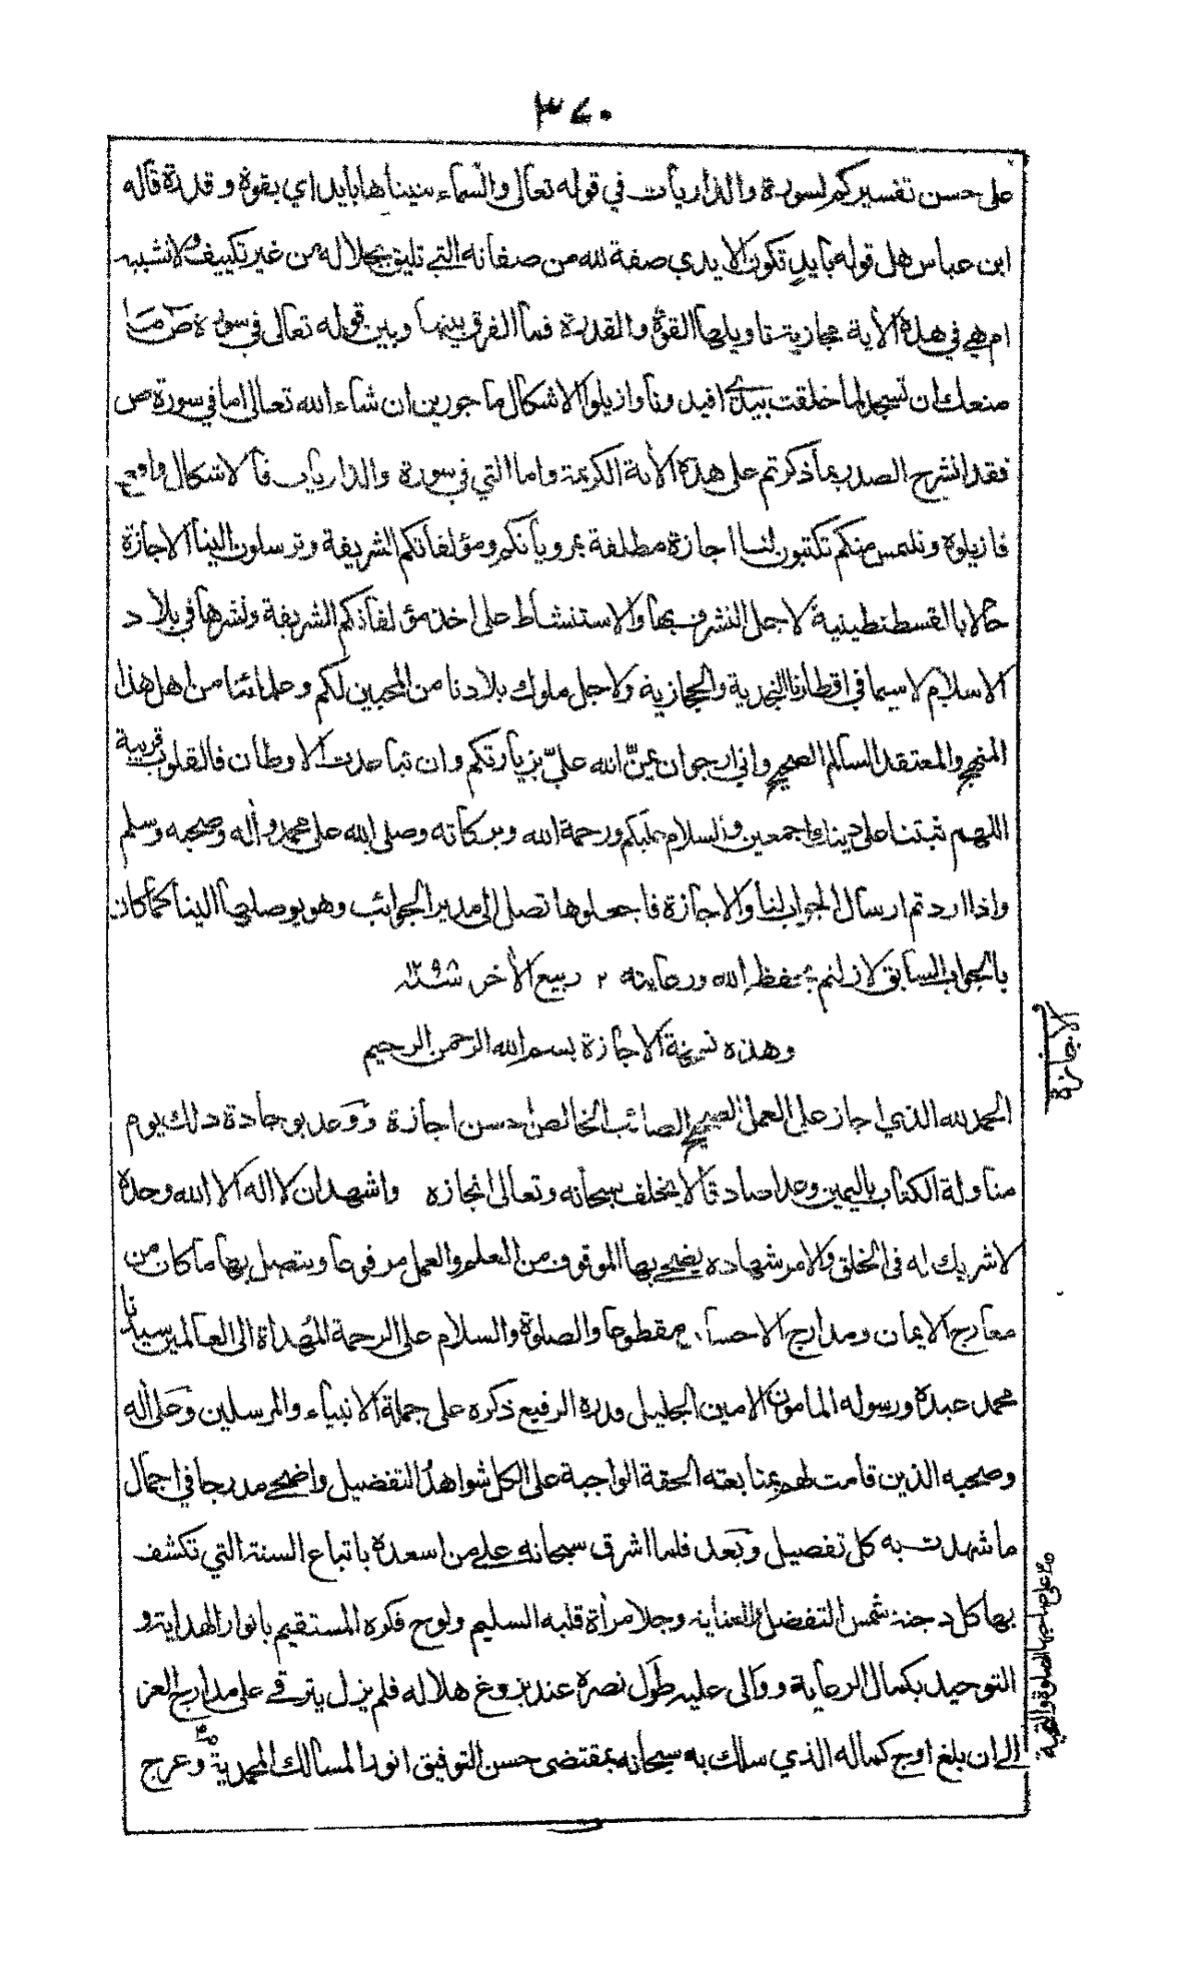 ٣٧٠
على حسن تفسيركم لسورة والذاريات في قوله تعالى والسماء بنيناها بايد اي بقوة وقدرة قاله
ابن عباس هل قوله بأيدٍ تكون الايدي صفة لله من صفاته التي تليق بجلاله من غير تكييف ولا تشبيه
ام هي في هذه الأية مجازية تاويلها القوة والقدرة فما الفرق بينهما وبين قوله تعالى في سورة ص ما
منعك ان تسجد لما خلقت بيدي افيدونا وازيلوا الاشكال ماجورين ان شاء الله تعالى اما في سورة ص
فقد انشرح الصدر بما ذكرتم على هذه الأية الكريمة واما التي في سورة والذاريات فالاشكال واضح
فازيلوه ونلتمس منكم تكتبون لنا اجازة مطلقة بمروياتكم ومؤلفاتكم الشريفة وترسلون الينا الاجازة
حالا بالقسطنطينية لاجل التشرف بها والاستنشاط على اخذ مؤلفاتكم الشريفة ونشرها في بلاد
الاسلام لاسيما في اقطارنا النجدية والحجازية ولاجل ملوك بلادنا من المحبين لكم وعلمائنا من اهل هذا
المنهج والمعتقد السالم الصحيح واني ارجو ان يمنّ الله عليّ بزيارتكم وان تباعدت الاوطان فالقلوب قريبة
اللهم ثبتنا على دينك اجمعين والسلام عليكم ورحمة الله وبركاته وصلى الله على محمد وأله وصحبه وسلم
واذا اردتم ارسال الجواب لنا والاجازة فاجعلوها تصل الى مدير الجوائب وهو يوصلها الينا كما كان
بالجواب السابق لازلتم بحفظ الله ورعايته ٢ ربيع الأخر سنة ١٢٩٨
وهذه نسخة الاجازة بسم الله الرحمن الرحيم
الاجازة
الحمد لله الذي اجاز على العمل الصحيح الصائب الخالص احسن اجازة ووعد بوجادة ذلك يوم
مناولة الكتاب باليمين وعدا صادقا لا يخلف سبحانه وتعالى انجازه واشهد ان لا اله الا الله وحده
لا شريك له في الخلق والامر شهادة يضحى بها الموقوف من العلم والعمل مرفوعا ويتصل بها ما كان من
معارج الايمان ومدارج الاحسان مقطوعا والصلوة والسلام على الرحمة المُهداة الى العالمين سيدنا
محمد عبده ورسوله المامون الامين الجليل قدره الرفيع ذكره على جملة الانبياء والمرسلين وعلى أله
وصحبه الذين قامت لهم بمتابعته الحقة الواجبة على الكل شواهد التفضيل واضحى مدرجا في اجمال
ما شهدت به كل تفصيل وبعد فلما اشرق سبحانه على من اسعده باتباع السنة التي تكشف
بها كل دجنة شمس التفضل والعناية وجلا مرأة قلبه السليم ولوح فكره المستقيم بانوار الهداية و
التوحيد بكمال الرعاية ووالى عليه طَول نصره عند بزوغ هلاله فلم يزل يترقى على مدارج العز
الى ان بلغ اوج كماله الذي سلك به سبحانه بمقتضى حسن التوفيق انور المسالك المحمدية وعرج
على صاحبها الصلوة والتحية